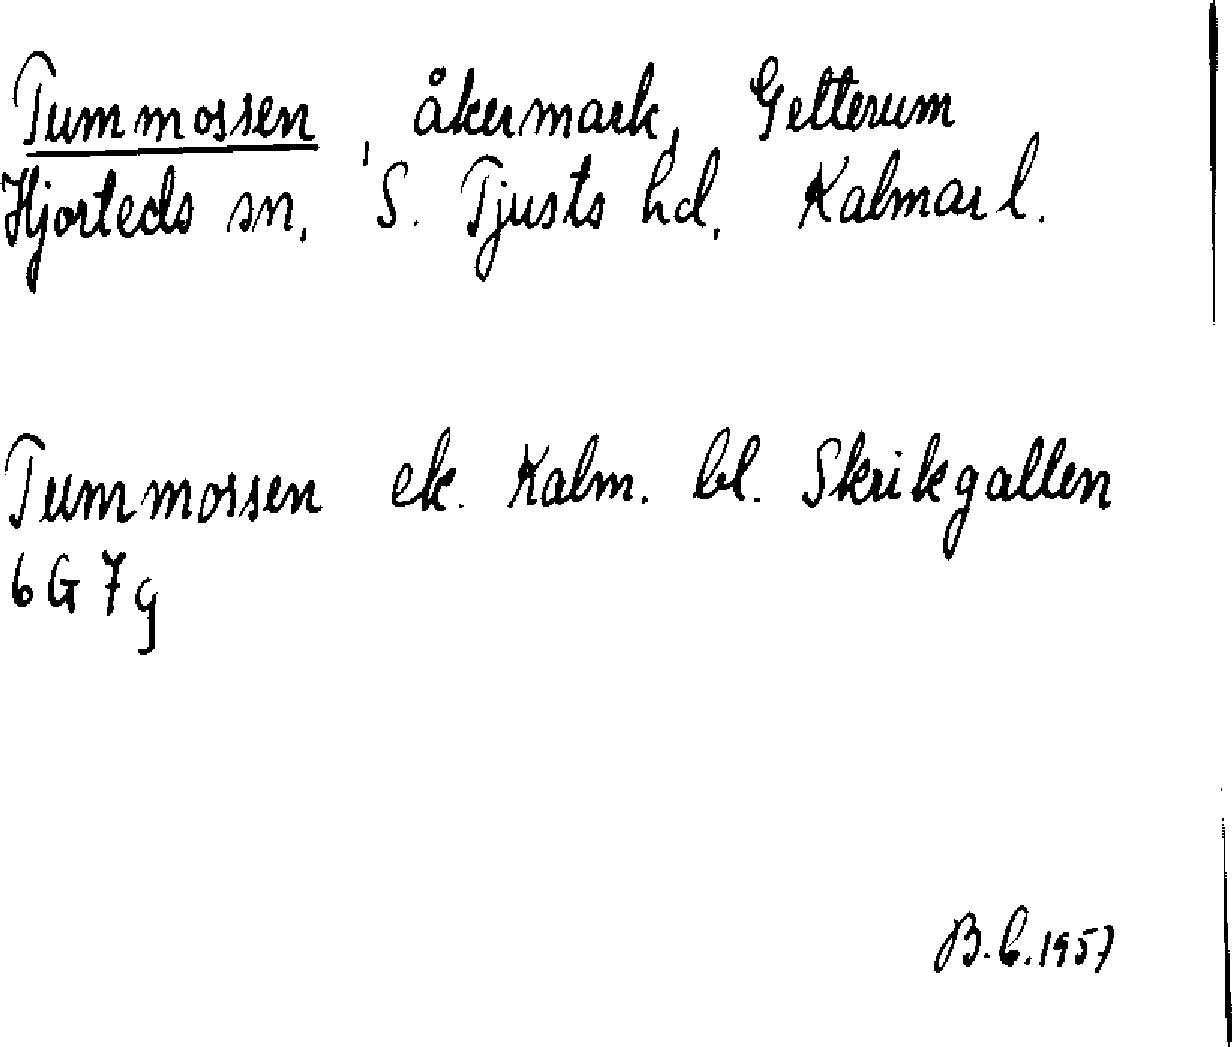 Tummossen, åkermark, Gelterum
Hjorteds sn, S. Tjusts hd, Kalmar l.
Tummossen ek. Kalm. bl. Skrikgallen
6G 7g
B.C. 1957